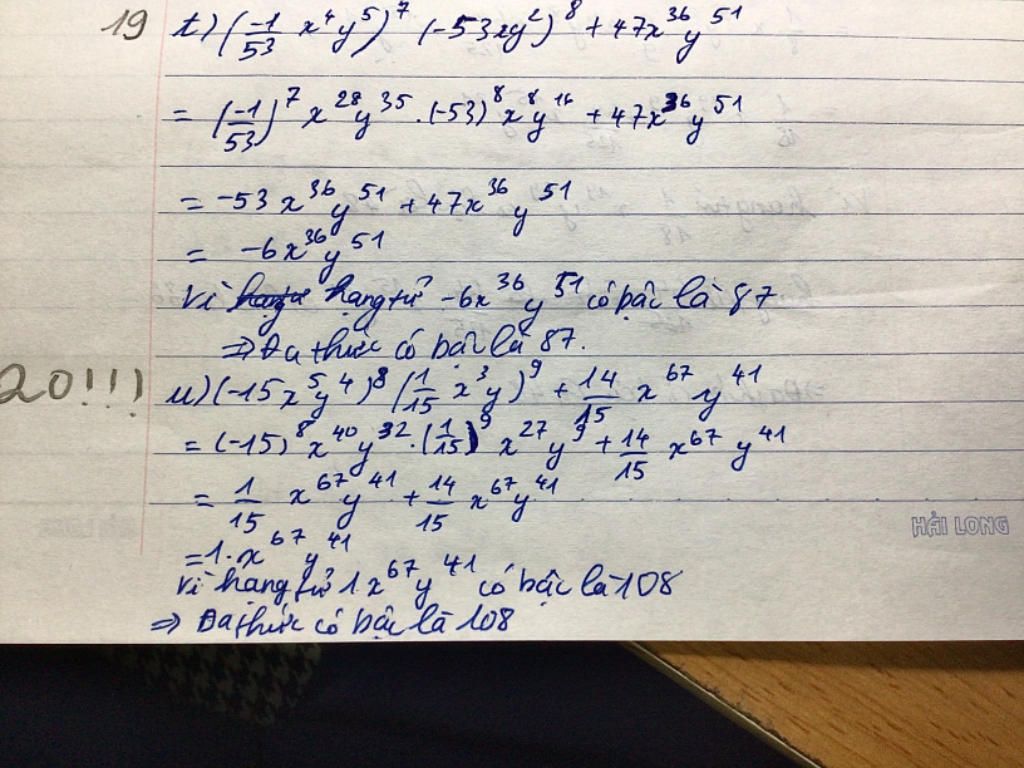 19 t) (-1/53 x⁴y⁵)⁷ (-53xy²)⁸ + 47x³⁶y⁵¹
= (-1/53)⁷ x²⁸y³⁵ . (-53)⁸x⁸y¹⁶ + 47x³⁶y⁵¹
= -53x³⁶y⁵¹ + 47x³⁶y⁵¹
= -6x³⁶y⁵¹
Vì hạng tử -6x³⁶y⁵¹ có bậc là 87
⇒ Đa thức có bậc là 87.
20!!! u) (-15x⁵y⁴)⁸ (1/15 x³y)⁹ + 14/15 x⁶⁷y⁴¹
= (-15)⁸x⁴⁰y³². (1/15)⁹ x²⁷y⁹ + 14/15 x⁶⁷y⁴¹
= 1/15 x⁶⁷y⁴¹ + 14/15 x⁶⁷y⁴¹
HẢI LONG
= 1. x⁶⁷y⁴¹
Vì hạng tử 1x⁶⁷y⁴¹ có bậc là 108
⇒ Đa thức có bậc là 108